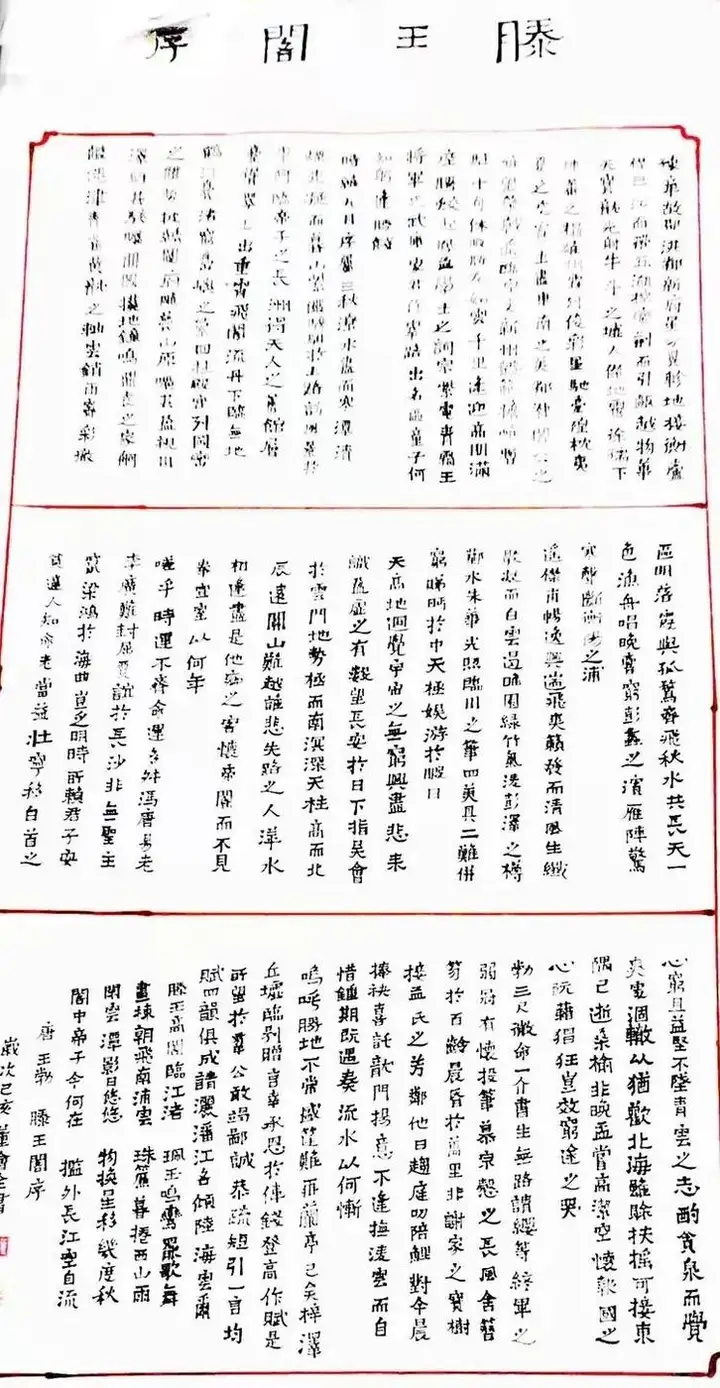 滕王閣序
故郡洪都新府星分翼軫地接衡廬
江而帶五湖控蠻荊而引甌越物華
天寶龍光射牛斗之墟人傑地靈徐孺下
陳蕃之榻雄州霧列俊彩星馳臺隍枕夷
夏之交賓主盡東南之美都督閻公之
雅望棨戟遙臨宇文新州懿範襜帷暫
駐十旬休暇勝友如雲千里逢迎高朋滿
座騰蛟起鳳孟學士之詞宗紫電青霜王
將軍之武庫家君作宰路出名區童子何
知躬逢勝餞
時維九月序屬三秋潦水盡而寒潭清
凝而暮山紫儼驂騑於上路訪風景於
臨帝子之長洲得天人之舊館層
巒聳翠上出重霄飛閣流丹下臨無地
鶴汀鳧渚窮島嶼之縈回桂殿列岡巒
之體勢披繡闥俯雕甍山原曠其盈視川
澤紆其駭矚閭閻撲地鐘鳴鼎食之家舸
艦迷津青雀黃龍之舳雲銷雨霽彩徹
區明落霞與孤鶩齊飛秋水共長天一
色漁舟唱晚響窮彭蠡之濱雁陣驚
寒聲斷衡陽之浦
遙襟甫暢逸興遄飛爽籟發而清風生纖
歌凝而白雲遏睢園綠竹氣淩彭澤之樽
鄴水朱華光照臨川之筆四美具二難併
窮睇眄於中天極娛游於暇日
天高地迥覺宇宙之無窮興盡悲來
識盈虛之有數望長安於日下指吳會
於雲門地勢極而南溟深天柱高而北
辰遠關山難越誰悲失路之人萍水
相逢盡是他鄉之客懷帝閽而不見
奉宣室以何年
嗟乎時運不齊命運多舛馮唐易老
李廣難封屈賈誼於長沙非無聖主
竄梁鴻於海曲豈乏明時所賴君子安
貧達人知命老當益壯寧移白首之
心窮且益堅不墜青雲之志酌貪泉而覺
爽處涸轍以猶歡北海雖賒扶搖可接東
隅已逝桑榆非晚孟嘗高潔空懷報國之
心阮藉猖狂豈效窮途之哭
勃三尺微命一介書生無路請纓等終軍之
弱冠有懷投筆慕宗愨之長風舍簪
笏於百齡晨昏於萬里非謝家之寶樹
接孟氏之芳鄰他日趨庭叨陪鯉對今晨
捧袂喜託龍門揚意不逢撫凌雲而自
惜鍾期既遇奏流水以何慚
嗚呼勝地不常盛筵難再蘭亭已矣梓澤
丘墟臨別贈言幸承恩於偉餞登高作賦是
所望於羣公敢竭鄙誠恭疏短引一言均
賦四韻俱成請灑潘江各傾陸海雲爾
滕王高閣臨江渚 珮玉鳴鸞罷歌舞
畫棟朝飛南浦雲 珠簾暮捲西山雨
閑雲潭影日悠悠 物換星移幾度秋
閣中帝子今何在 檻外長江空自流
唐王勃 滕王閣序
歲次己亥